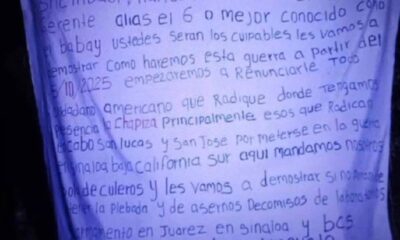 Gerente alias el 6 o mejor conocido como
el babay ustedes seran los culpables les vamos a
demostrar como haremos esta guerra a partir del
5/10/2025 empezaremos a Renunciarle Todo
ciudadano americano que Radique donde Tengamos
Presencia la Chapiza Principalmente esos que Radican
en cabo San Lucas y San Jose por meterse en la guerra
sinaloa baja California Sur aqui mandamos nosotros
de culeros y les vamos a demostrar si no
la Plebada y de asernos Decomisos de
en Juarez en Sinaloa y bcs